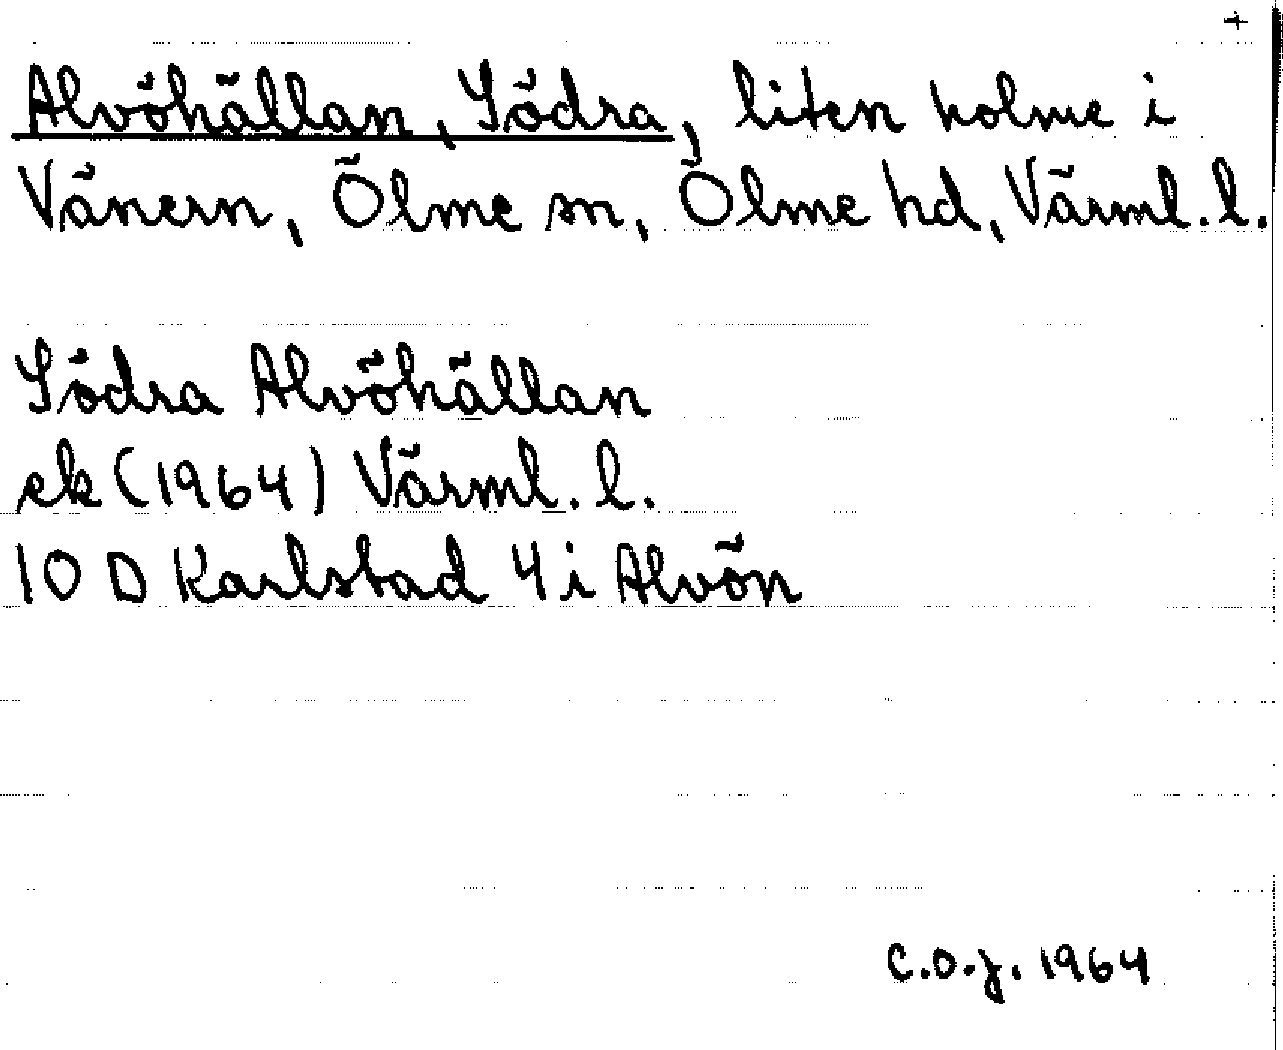 +
Alvöhällan, Södra, liten holme i
Vänern, Ölme sn, Ölme hd, Värml. l.
Södra Alvöhällan
ek (1964) Värml. l.
10 D Karlstad 4 i Alvön
C.O.J. 1964